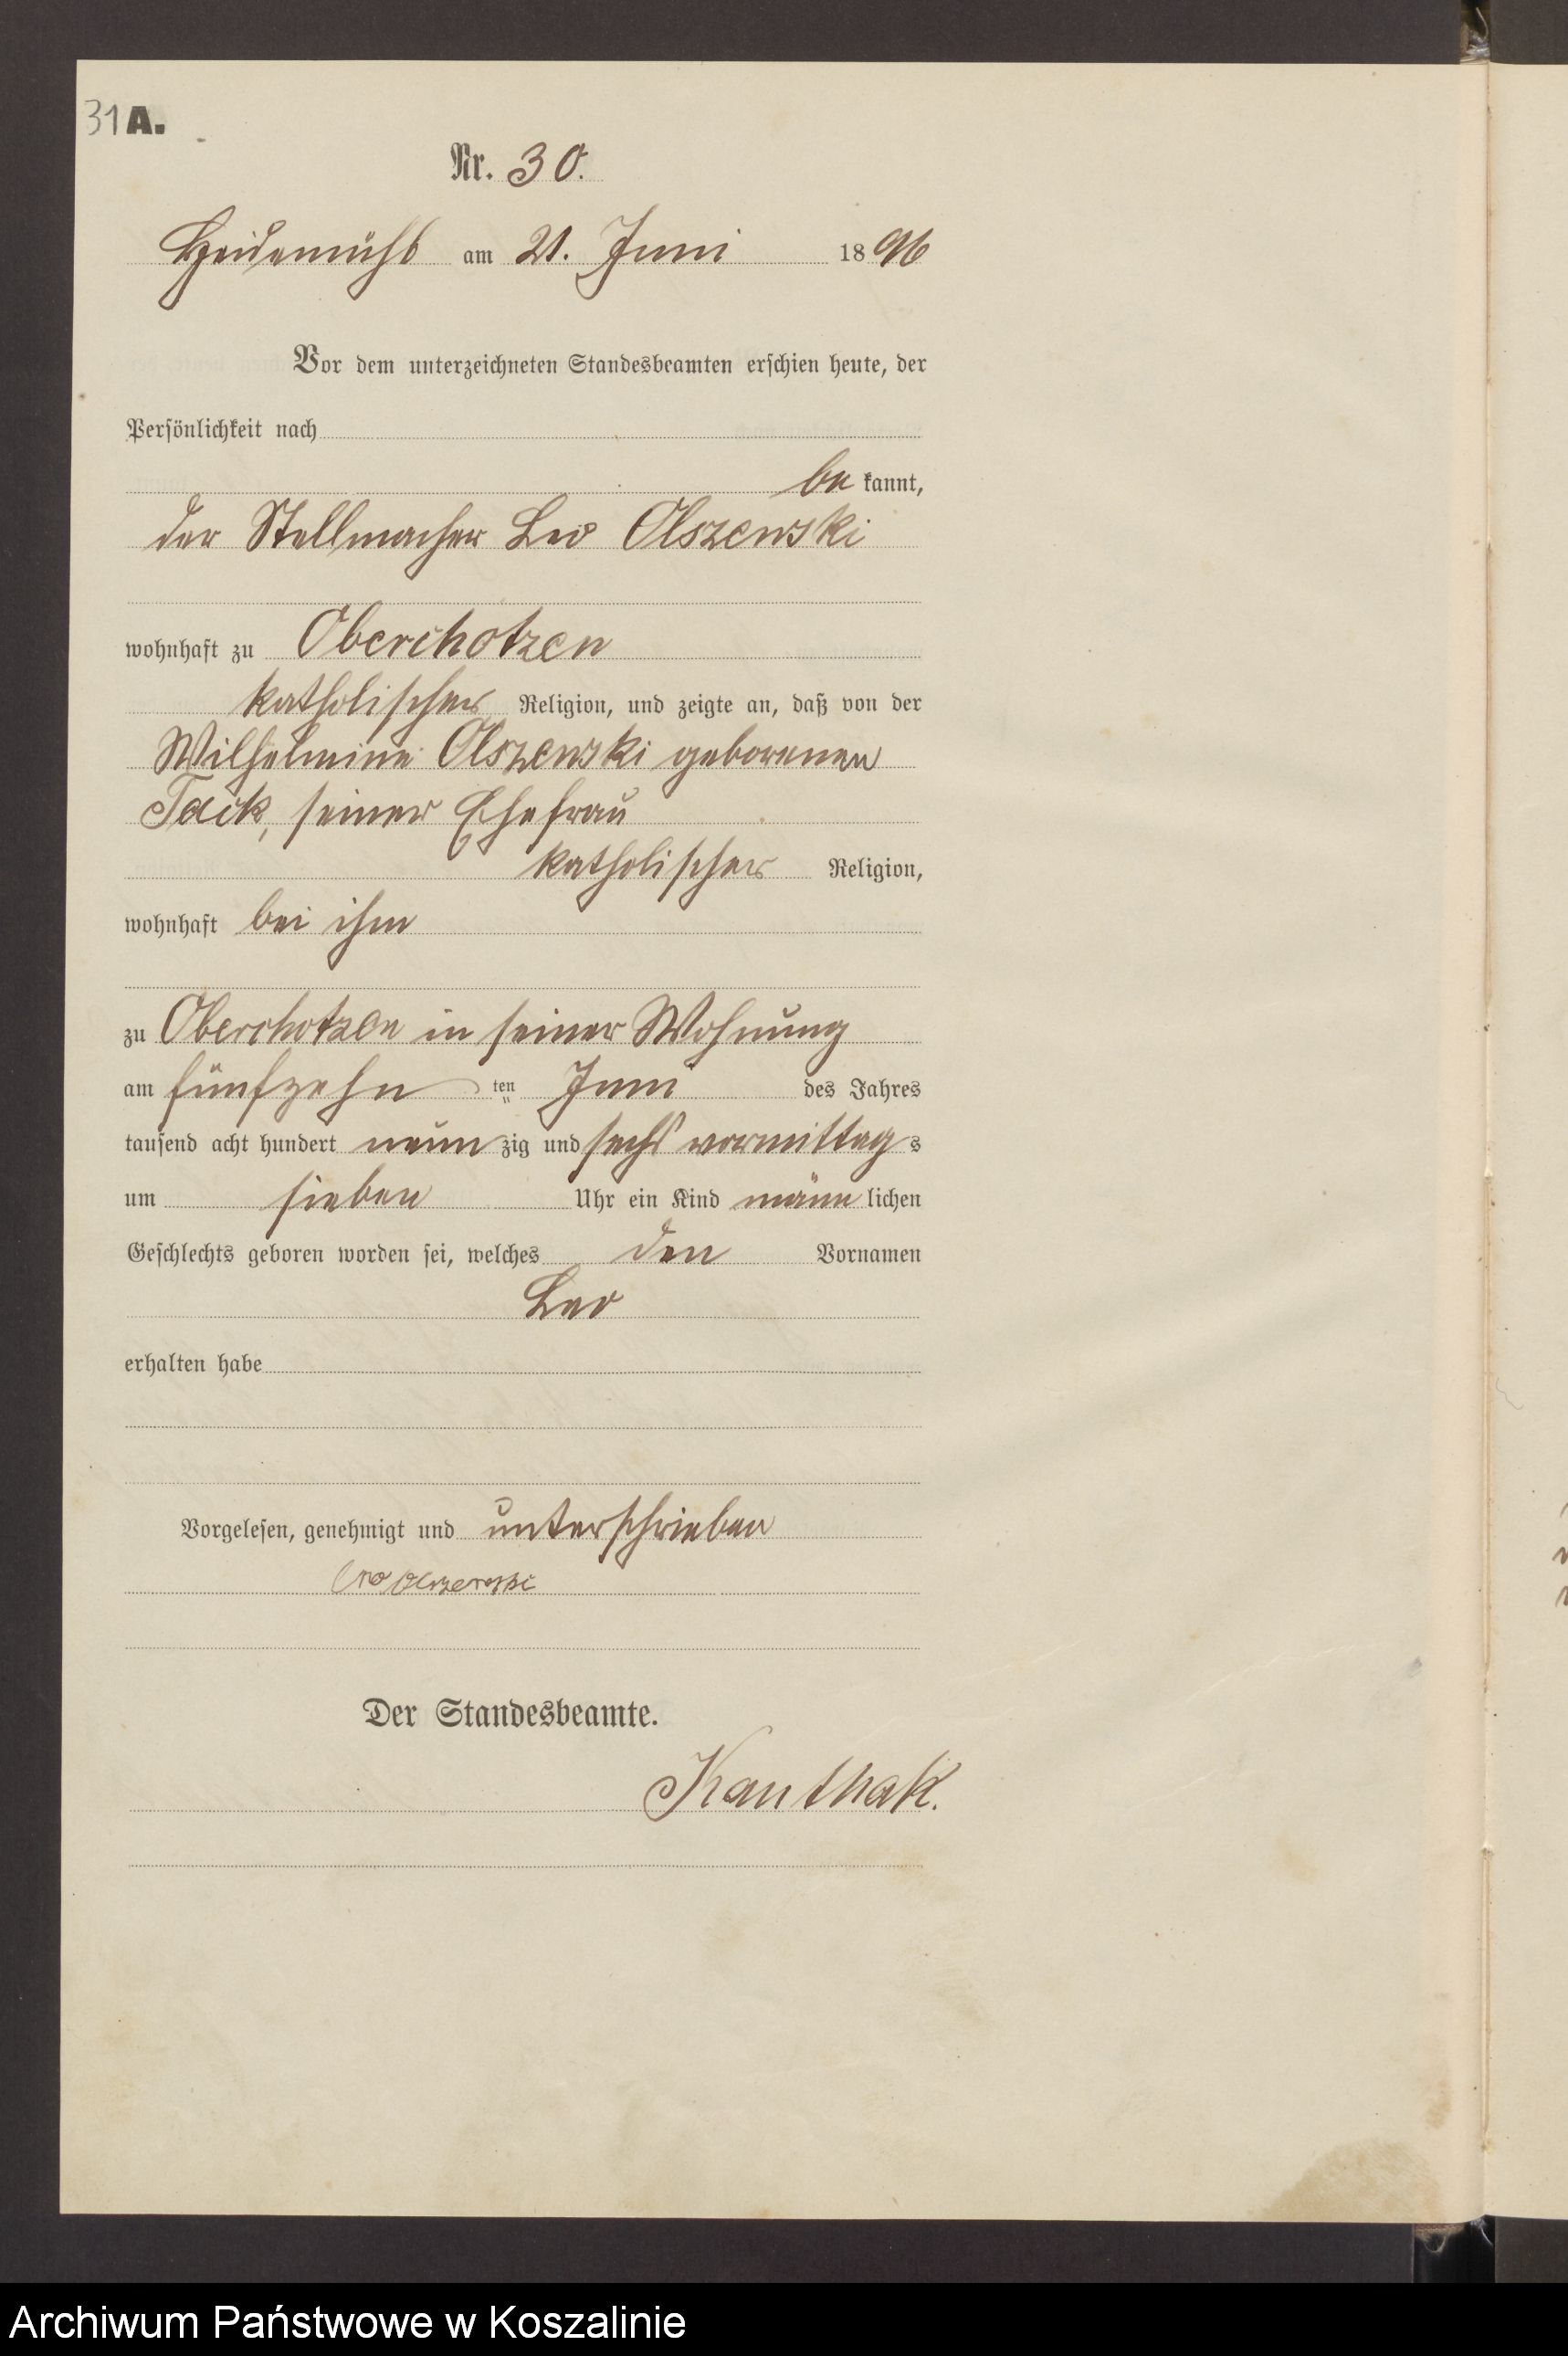 31 A.
Nr. 30.
Heidemühl am 21. Juni 1896
Vor dem unterzeichneten Standesbeamten erschien heute, der
Persönlichkeit nach
be kannt,
der Stellmacher Leo Olszewski
wohnhaft zu Oberchotzen
katholischer Religion, und zeigte an, daß von der
Wilhelmine Olszewski geborenen
Tack, seiner Ehefrau
katholischer Religion,
wohnhaft bei ihm
zu Oberchotzen in seiner Wohnung
am fünfzehn ten Juni des Jahres
tausend acht hundert neun zig und sechs vormittag s
um sieben Uhr ein Kind männ lichen
Geschlechts geboren worden sei, welches den Vornamen
Leo
erhalten habe
Vorgelesen, genehmigt und unterschrieben
Leo Olszewski
Der Standesbeamte.
Kanthak.
Archiwum Państwowe w Koszalinie